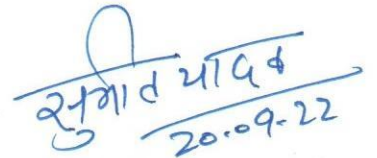 सुमीत यादव
20.09.22